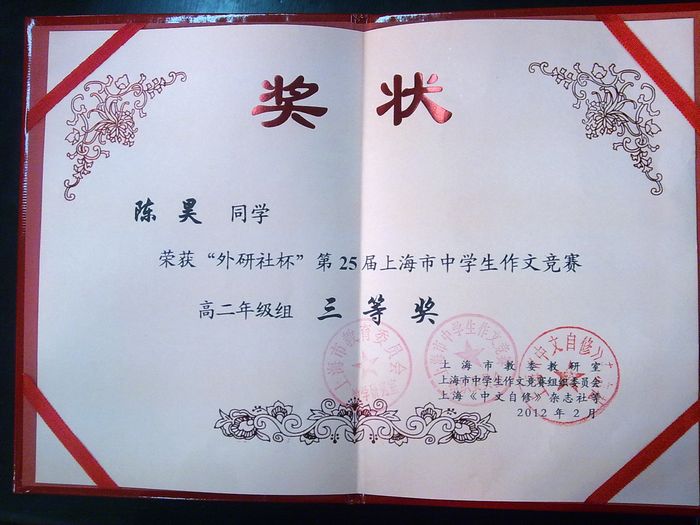 奖状
陈昊 同学
荣获“外研社杯”第25届上海市中学生作文竞赛
高二年级组 三等奖
上海市教委教研室
上海市中学生作文竞赛组织委员会
上海《中文自修》杂志社等
2012年2月
上海市教育委员会
上海市中学生作文竞赛
《中文自修》